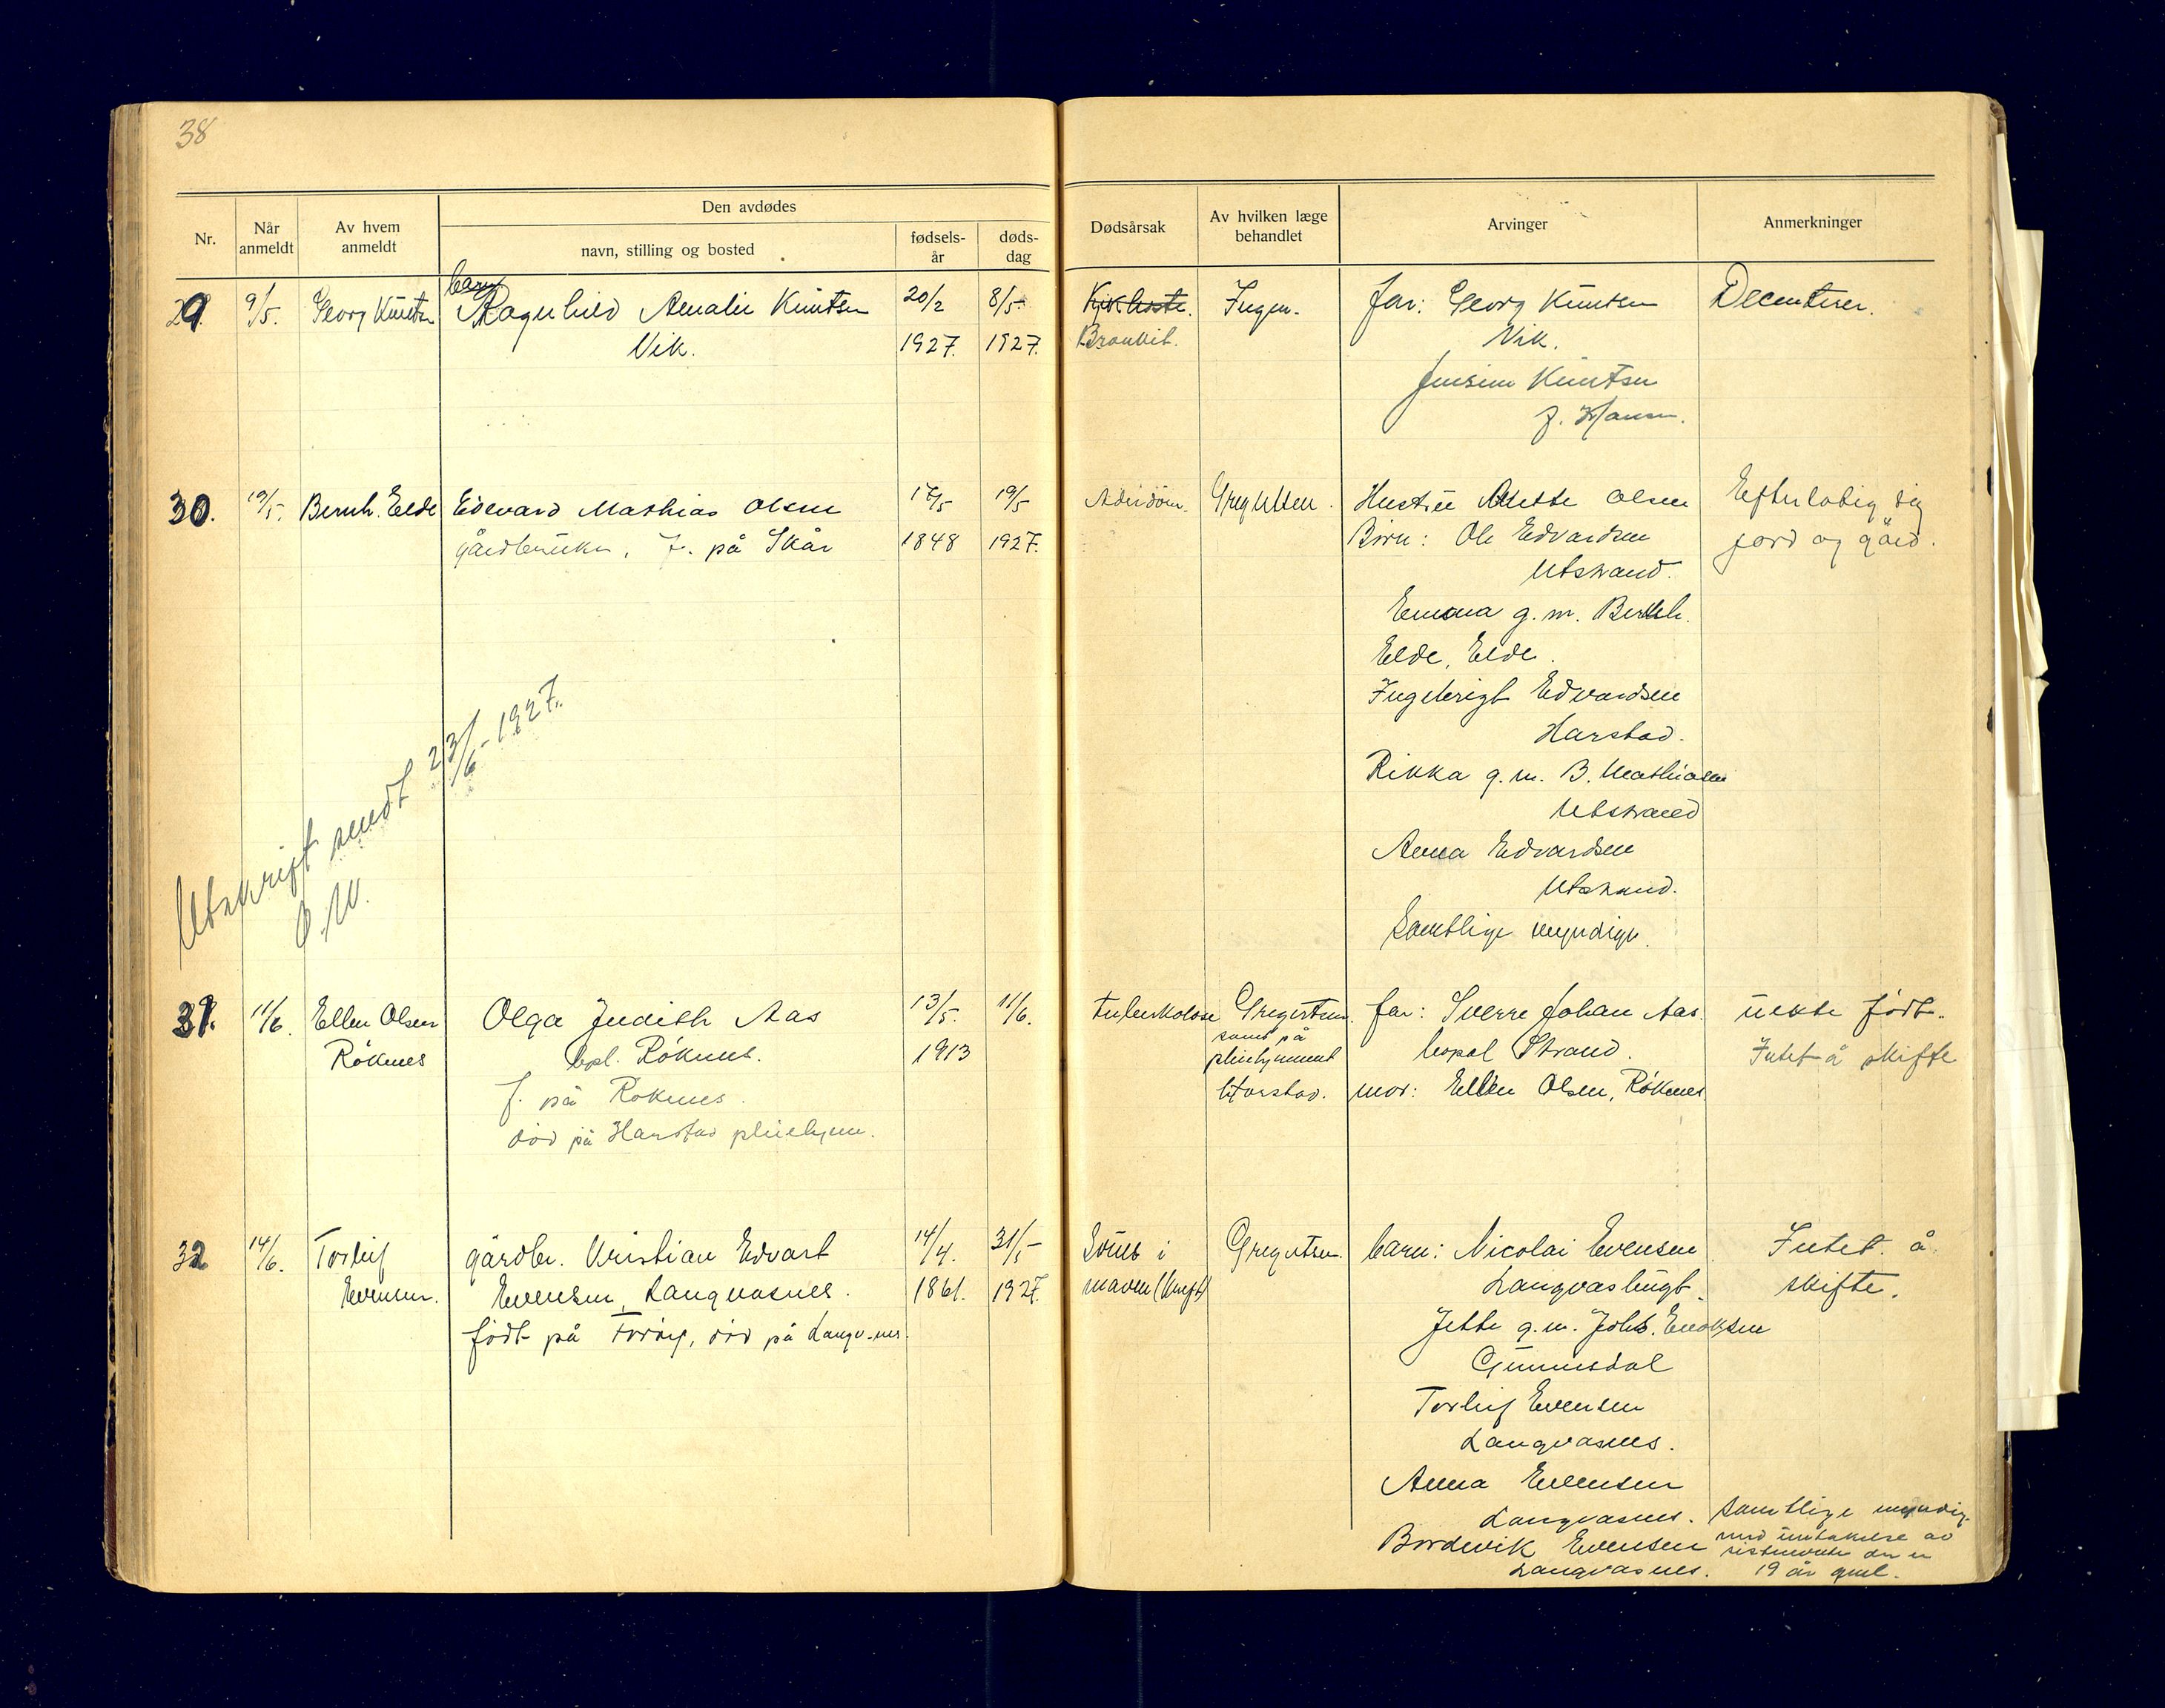 38
Nr.
Når anmeldt
Av hvem anmeldt
Den avdødes
navn, stilling og bosted
fødsels-år
døds-dag
Dødsårsak
Av hvilken læge behandlet
Arvinger
Anmerkninger
29. 9/5. Georg Knutsen barn Ragnhild Amalie Knutsen 20/2 8/5- Kikhoste. Ingen. far: Georg Knutsen Decentiser.
Vik. 1927. 1927. Bronkit. Vik.
Jensine Knutsen
f. Hansen.
30. 19/5. Bernh. Elde Edevard Mathias Olsen 17/5 19/5 Alderdom. Gregertsen. Hustru Anette Olsen Efterlodig sig
gårdbruker, f. på Skår 1848 1927. Børn: Ole Edvardsen jord og gård.
Utstrand.
Emma g. m. Bernh.
Elde, Elde.
Ingebrigt Edvardsen
Harstad.
Rikka g. m. B. Mathiasen
Utstrand
Anna Edvardsen
Utstrand.
Samtlige myndige.
Utskrift sendt 23/6-1927.
31. 11/6. Ellen Olsen Olga Judith Aas 13/5. 11/6. Tuberkolose Gregertsen. far: Sverre Johan Aas. uekte født.
Røknes bpl. Røknes. 1913 samt på pleiehjemmet bopæl Strand. Intet å skifte
f. på Røknes. Harstad. mor: Ellen Olsen, Røknes
død på Harstad pleiehjem.
32 14/6. Torleif gårdbr. Kristian Edvart 14/4. 31/5- Sår i Gregertsen. barn: Nicolai Evensen Intet å
Evensen. Evensen, Langvasnes. 1861. 1927. maven (kreft) Langvasbugt. skifte.
født på Forøy, død på Langv.nes. Jette g. m. Johs. Enoksen
Gunnesdal
Torleif Evensen
Langvasnes.
Anna Evensen
Langvasnes. Samtlige myndig.
Bordevik Evensen med undtakelse av
Langvasnes. sistnevnte der er
19 år gml.